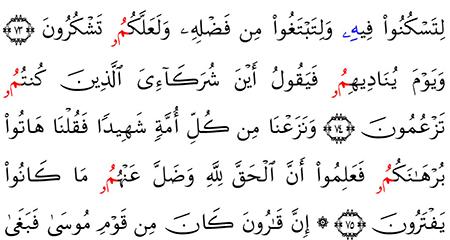 لِتَسْكُنُوا۟ فِيهِۦ وَلِتَبْتَغُوا۟ مِن فَضْلِهِۦ وَلَعَلَّكُمُۥ تَشْكُرُونَ ۝٧٣
وَيَوْمَ يُنَادِيهِمُۥ فَيَقُولُ أَيْنَ شُرَكَآءِىَ ٱلَّذِينَ كُنتُمُۥ
تَزْعُمُونَ ۝٧٤ وَنَزَعْنَا مِن كُلِّ أُمَّةٍ شَهِيدًا فَقُلْنَا هَاتُوا۟
بُرْهَـٰنَكُمُۥ فَعَلِمُوٓا۟ أَنَّ ٱلْحَقَّ لِلَّهِ وَضَلَّ عَنْهُمُۥ مَا كَانُوا۟
يَفْتَرُونَ ۝٧٥ ۞ إِنَّ قَـٰرُونَ كَانَ مِن قَوْمِ مُوسَىٰ فَبَغَىٰ